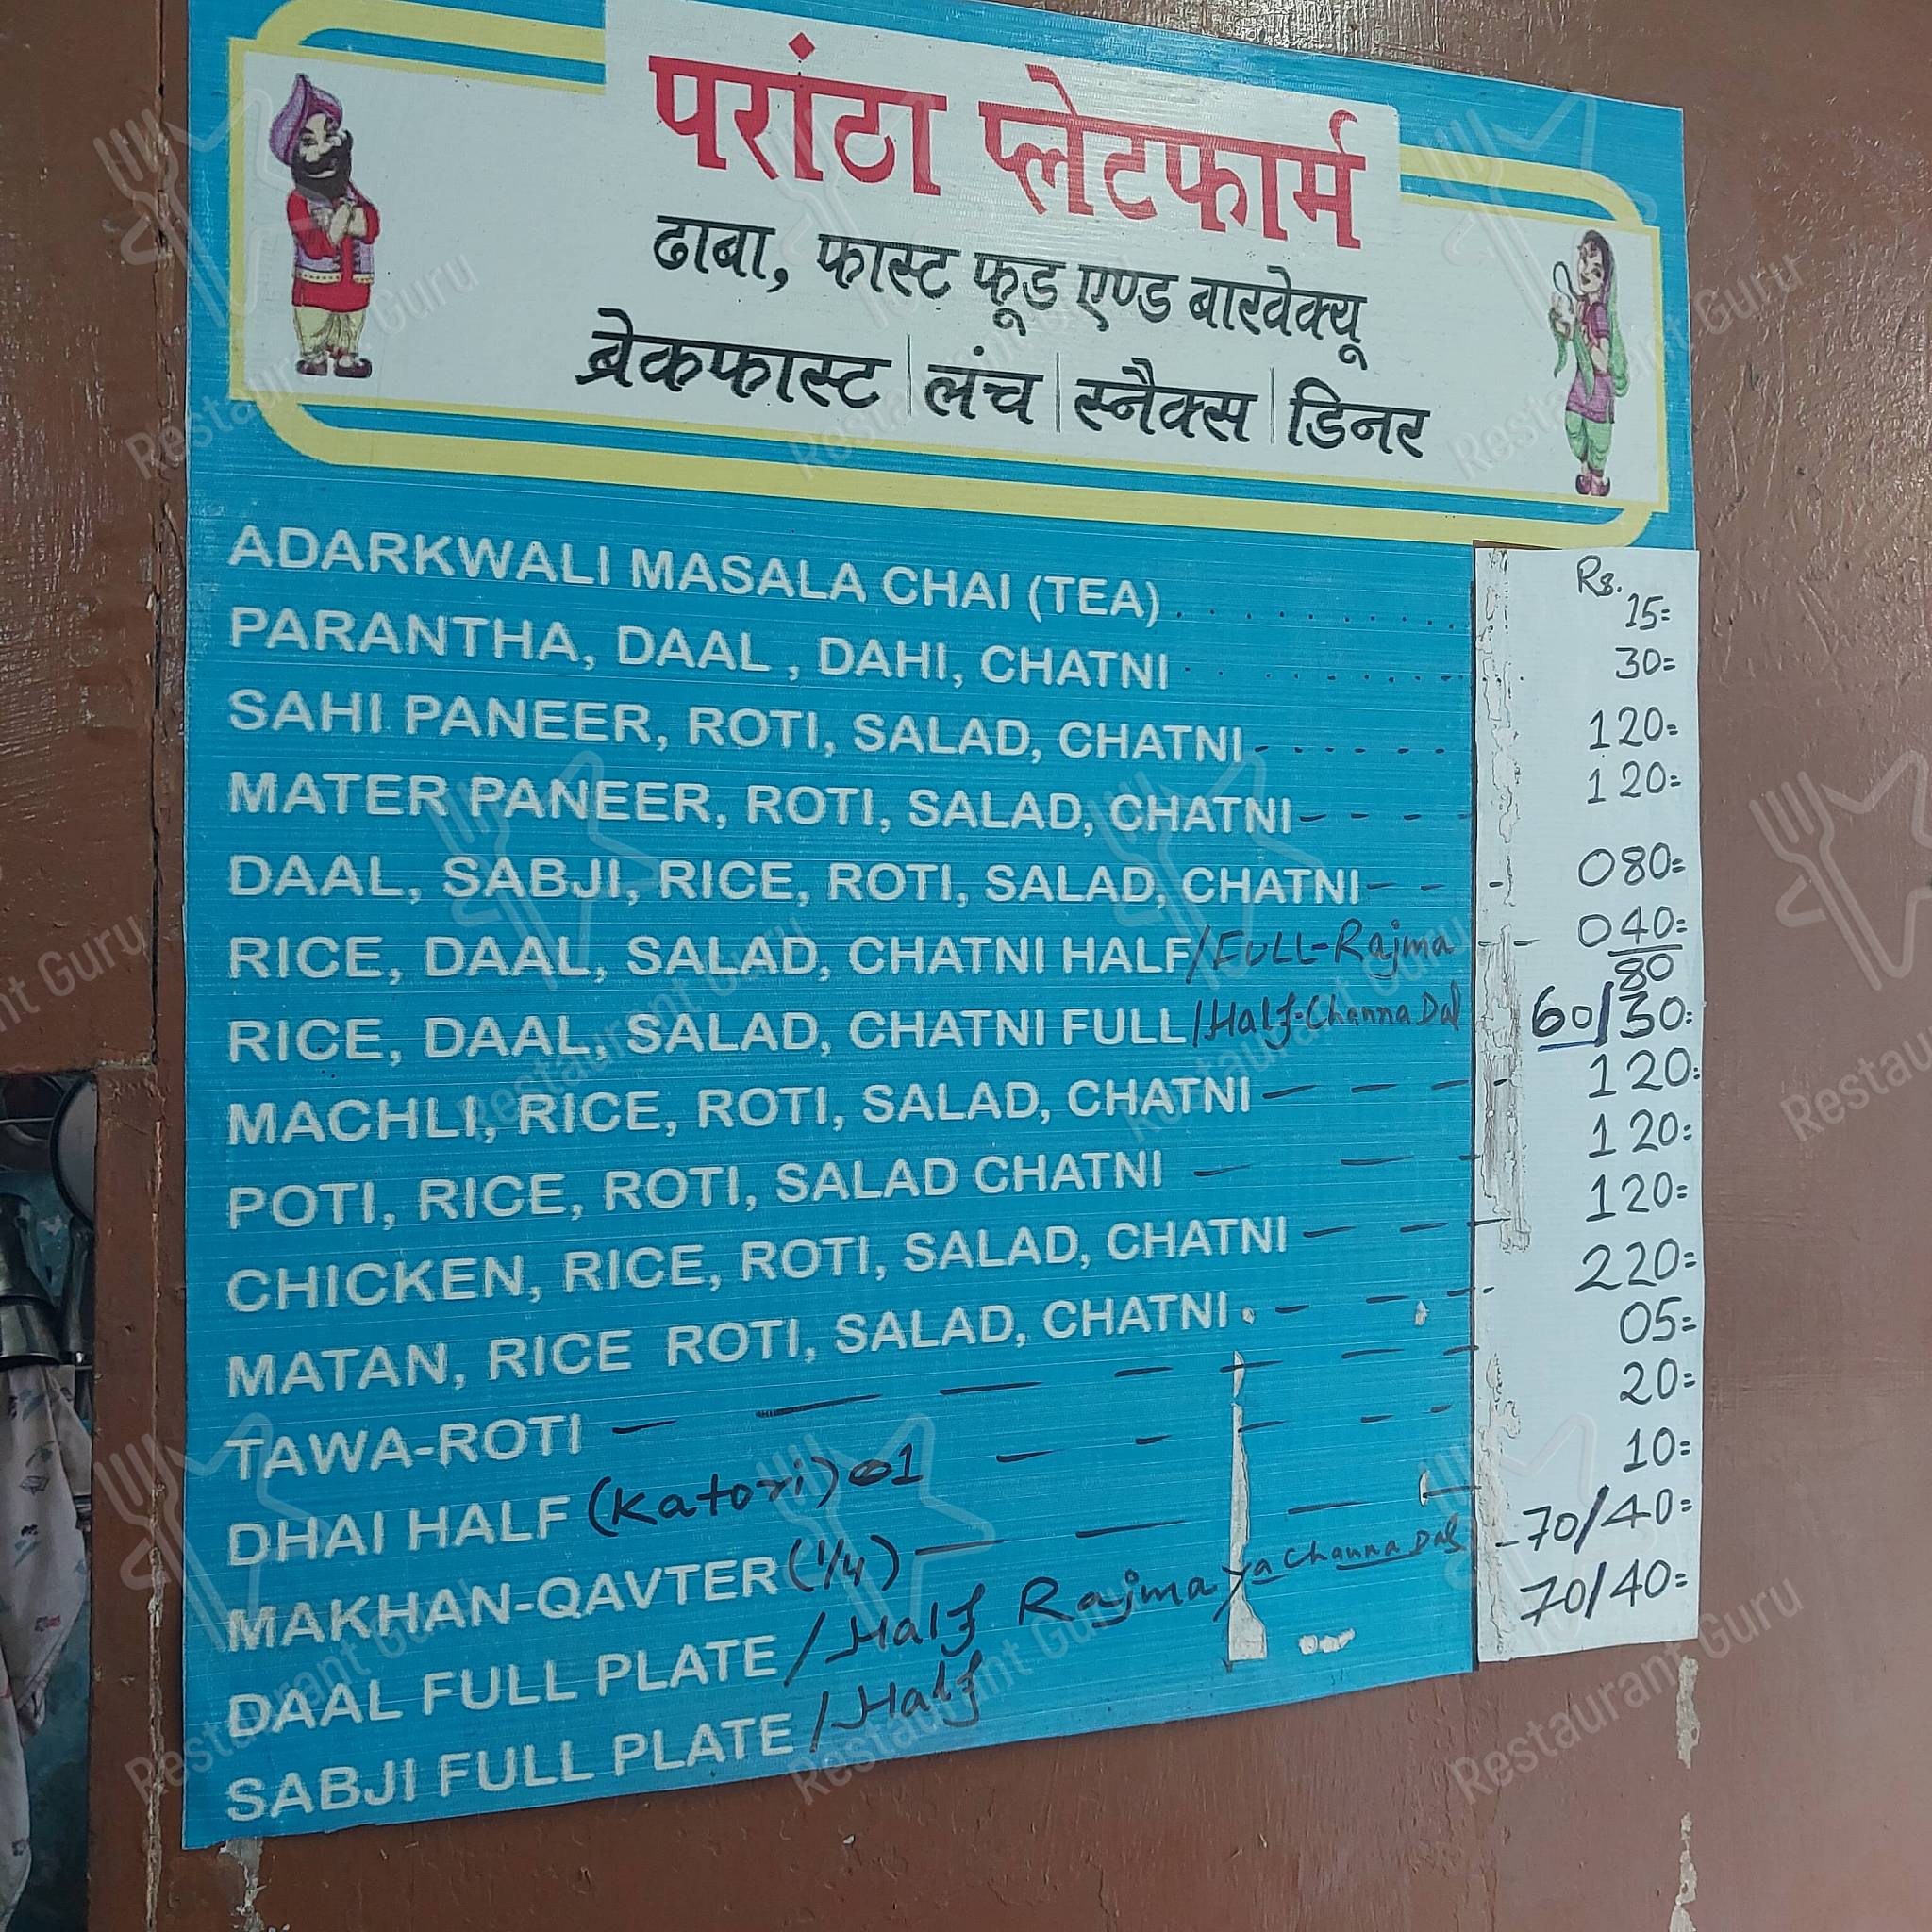 परांठा प्लेटफार्म
ढाबा, फास्ट फूड एण्ड बारवेक्यू
ब्रेकफास्ट | लंच | स्नैक्स | डिनर
Rs.
ADARKWALI MASALA CHAI (TEA) 15=
PARANTHA, DAAL , DAHI, CHATNI 30=
SAHI PANEER, ROTI, SALAD, CHATNI 120=
MATER PANEER, ROTI, SALAD, CHATNI 120=
DAAL, SABJI, RICE, ROTI, SALAD, CHATNI 080=
RICE, DAAL, SALAD, CHATNI HALF/FULL-Rajma 040=
80
RICE, DAAL, SALAD, CHATNI FULL/Half-Channa Dal 60/30=
MACHLI, RICE, ROTI, SALAD, CHATNI 120=
POTI, RICE, ROTI, SALAD CHATNI 120=
CHICKEN, RICE, ROTI, SALAD, CHATNI 120=
MATAN, RICE ROTI, SALAD, CHATNI 220=
TAWA-ROTI 05=
DHAI HALF (Katori) 01 20=
MAKHAN-QAVTER (1/4) 10=
DAAL FULL PLATE /Half Rajma ya Channa Dal 70/40=
SABJI FULL PLATE /Half 70/40=
Restaurant Guru